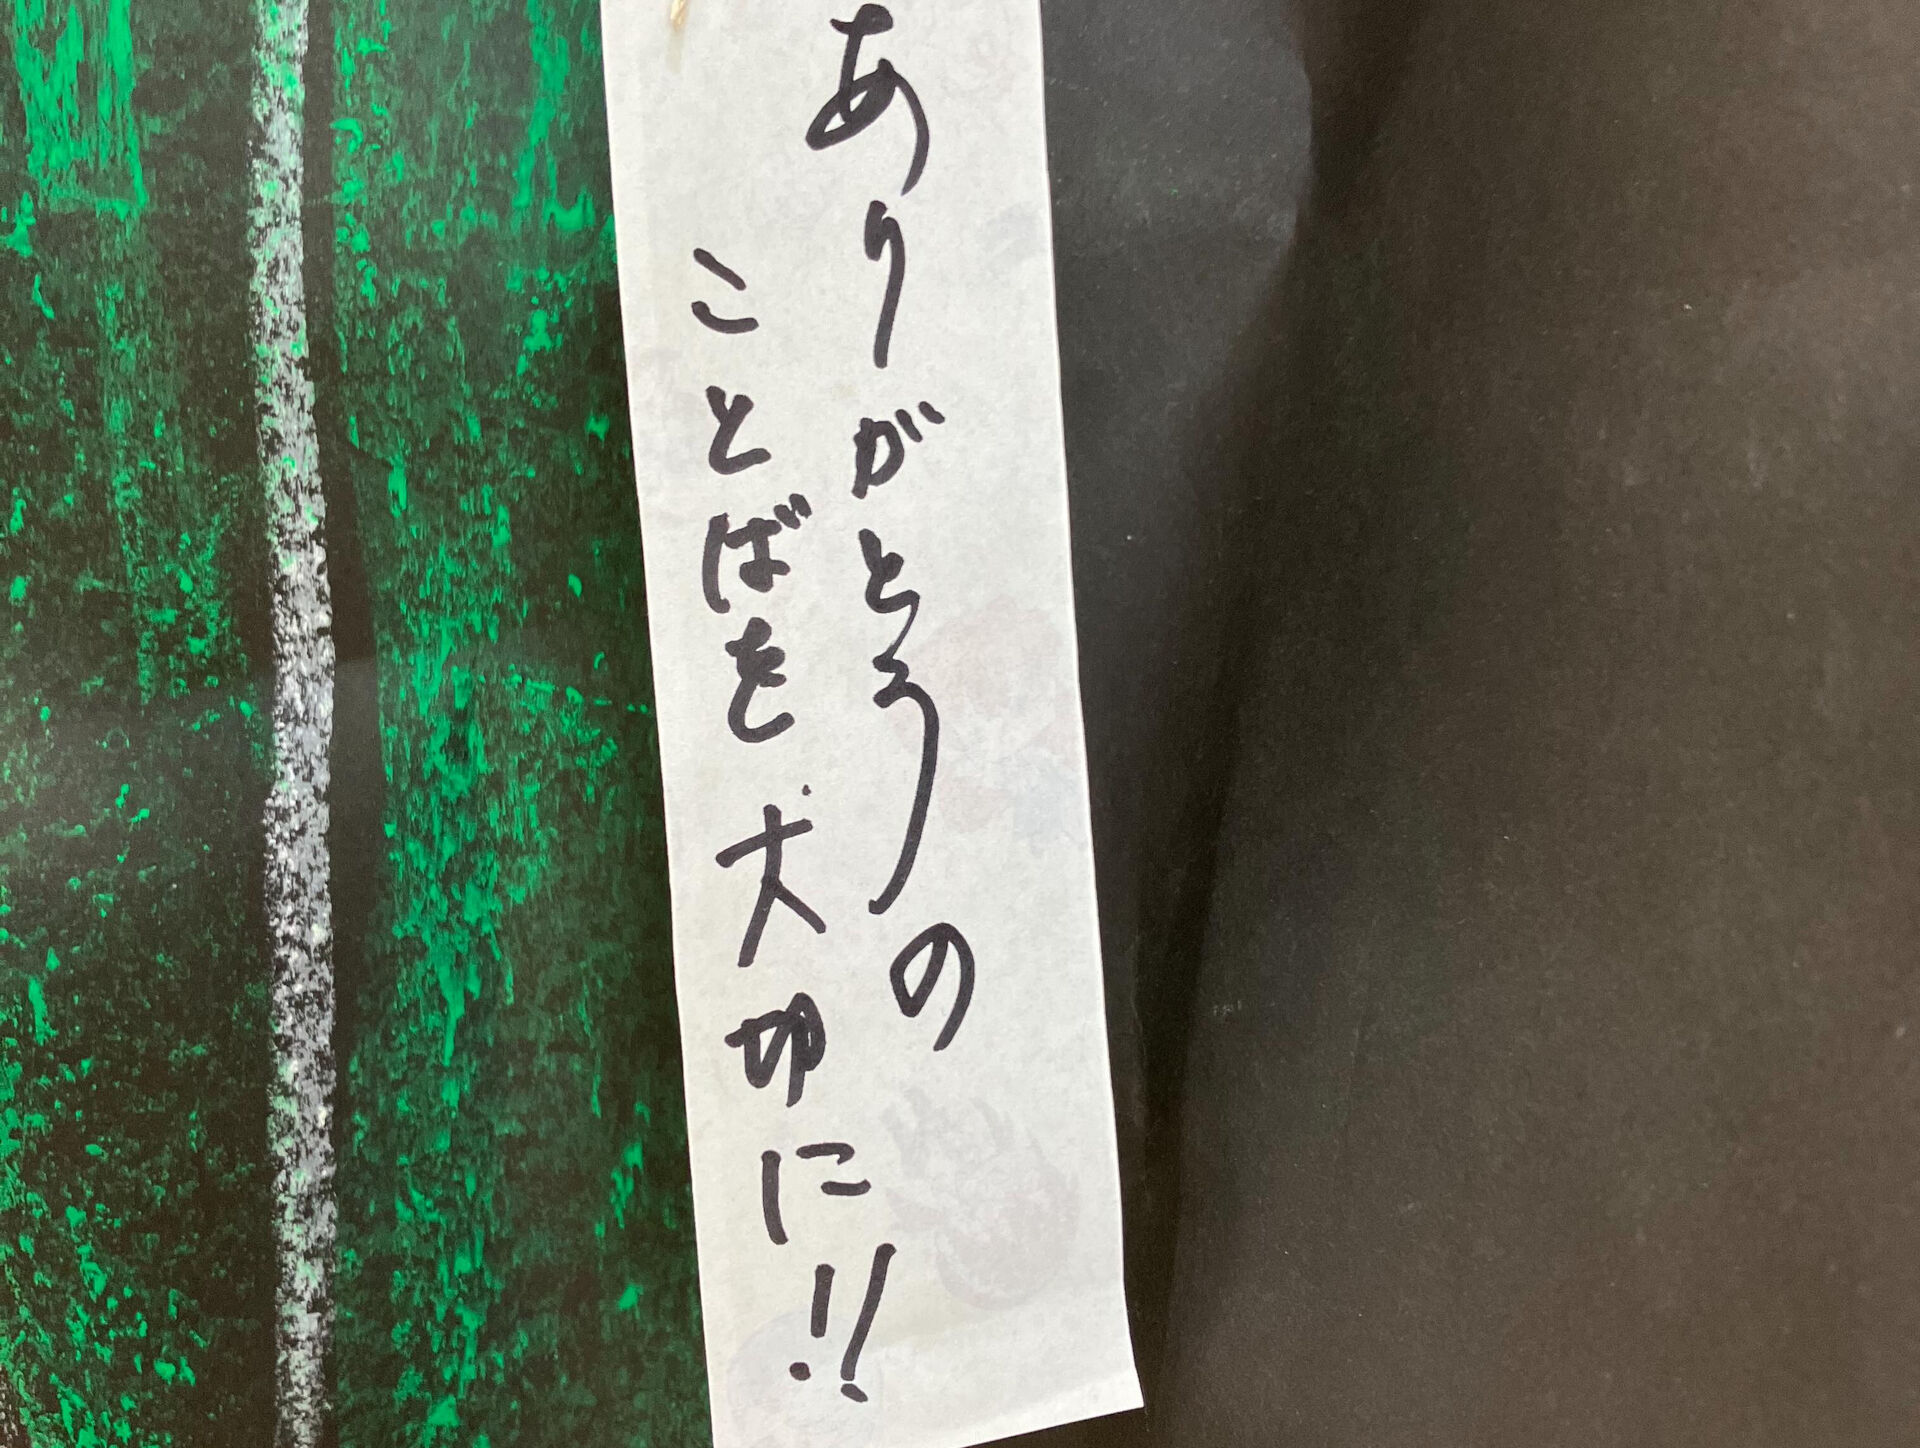 ありがとうの
ことばを大切に!!